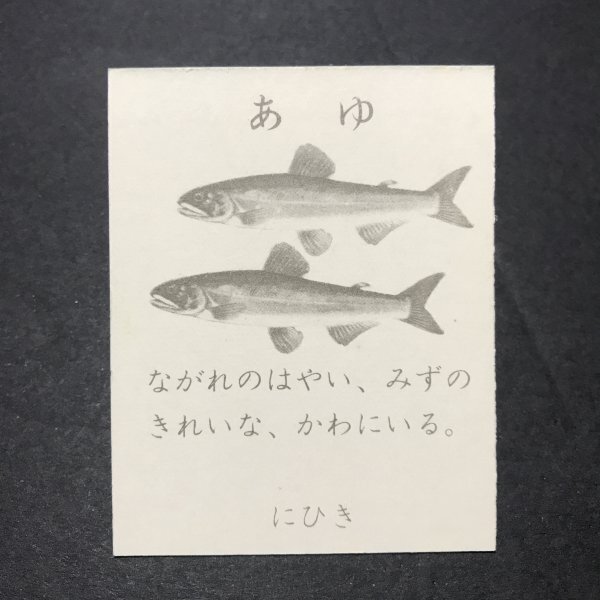 あゆ
ながれのはやい、みずの
きれいな、かわにいる。
にひき